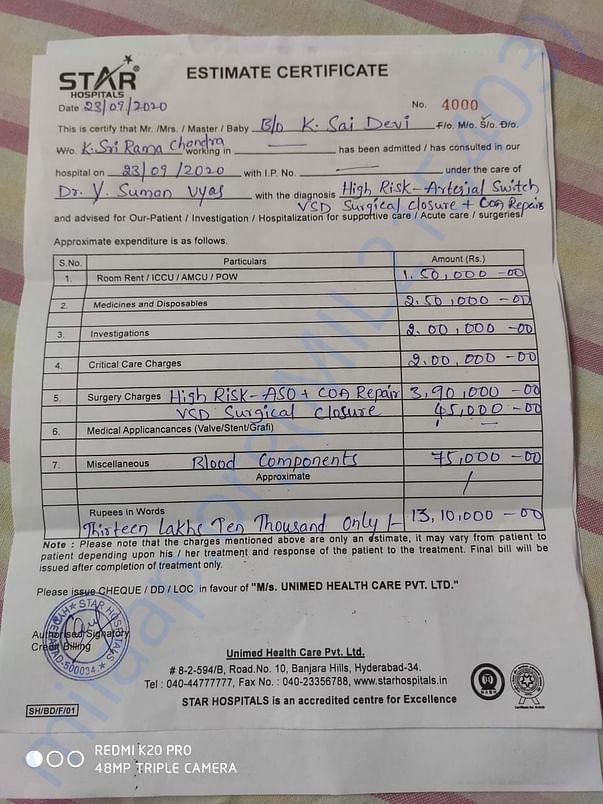 STAR
HOSPITALS
ESTIMATE CERTIFICATE
Date 23/09/2020 No. 4000
This is certify that Mr. /Mrs. / Master / Baby B/o K. Sai Devi F/o. M/o. S/o. D/o.
W/o. K. Sri Rama Chandra working in — has been admitted / has consulted in our
hospital on 23/09/2020 with I.P. No. — under the care of
Dr. Y. Suman Vyas with the diagnosis High Risk-Arterial Switch
VSD Surgical closure + COA Repair
and advised for Our-Patient / Investigation / Hospitalization for supportive care / Acute care / surgeries/
Approximate expenditure is as follows.
S.No. Particulars Amount (Rs.)
1. Room Rent / ICCU / AMCU / POW 1,50,000-00
2. Medicines and Disposables 2,50,000-00
3. Investigations 2,00,000-00
4. Critical Care Charges 2,00,000-00
5. Surgery Charges High Risk-ASO + COA Repair 3,90,000-00
VSD Surgical Closure 45,000-00
6. Medical Applicancances (Valve/Stent/Grafi) —
7. Miscellaneous Blood Components 75,000-00
Approximate /
Rupees in Words 13,10,000-00
Thirteen Lakhs Ten Thousand only/-
Note : Please note that the charges mentioned above are only an estimate, it may vary from patient to
patient depending upon his / her treatment and response of the patient to the treatment. Final bill will be
issued after completion of treatment only.
Please issue CHEQUE / DD / LOC in favour of "M/s. UNIMED HEALTH CARE PVT. LTD."
STAR HOSPITALS
500034
Authorised Signatory
Credit Billing
Unimed Health Care Pvt. Ltd.
# 8-2-594/B, Road.No. 10, Banjara Hills, Hyderabad-34.
Tel : 040-44777777, Fax No. : 040-23356788, www.starhospitals.in
STAR HOSPITALS is an accredited centre for Excellence
SH/BD/F/01
REDMI K20 PRO
48MP TRIPLE CAMERA